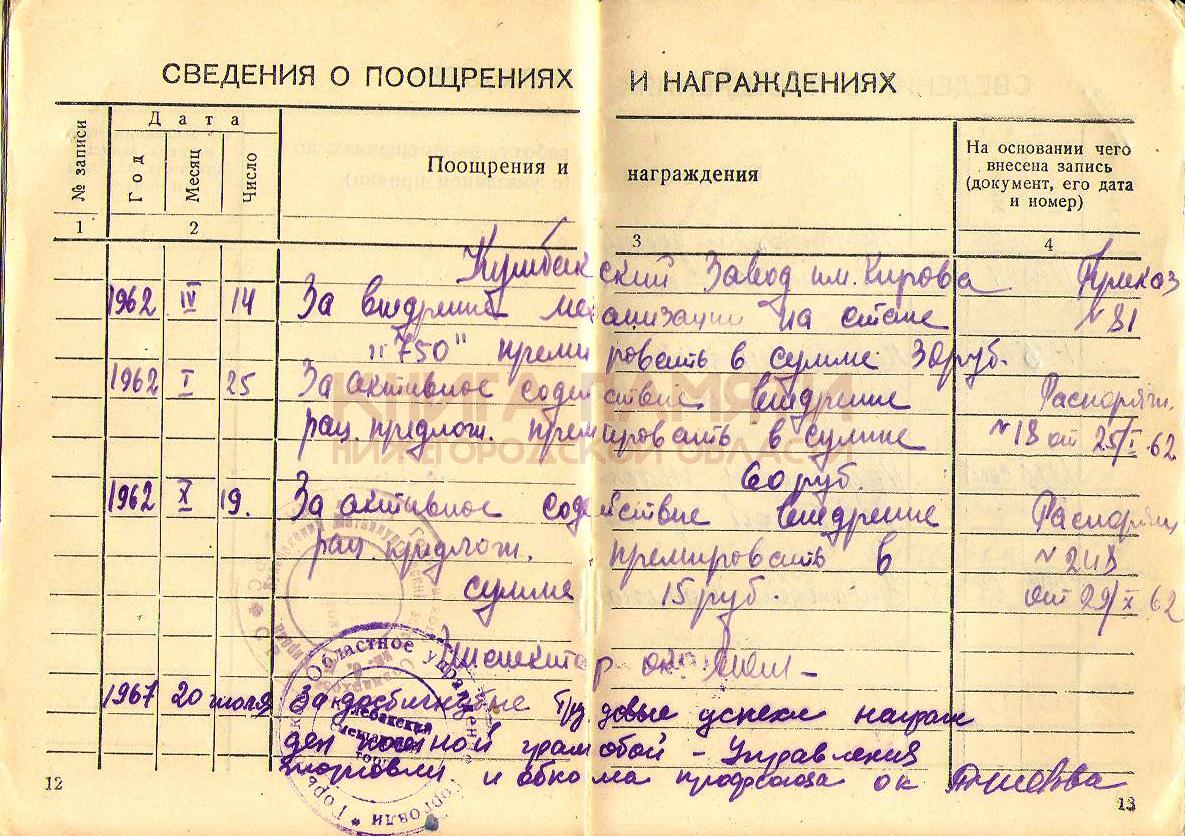 СВЕДЕНИЯ О ПООЩРЕНИЯХ И НАГРАЖДЕНИЯХ
№ записи
Дата
Год
Месяц
Число
Поощрения и награждения
На основании чего
внесена запись
(документ, его дата
и номер)
1 2 3 4
Кулебакский Завод им. Кирова Приказ
1962 IV 14 За внедрение механизации на стане N 81
"750" премировать в сумме 30 руб.
1962 I 25 За активное содействие внедрение Распоряж.
рац. предлож. премировать в сумме N 18 от 25/I 62
60 руб.
1962 X 19. За активное содействие внедрение Распоряж
рац. предлож. премировать в N 248
сумме 15 руб. от 29/X 62
Инспектор ок
1967 20 июля За достигнутые трудовые успехи награж
ден почетной грамотой - Управления
торговли и обкома профсоюза ок
КНИГА ПАМЯТИ
НИЖЕГОРОДСКОЙ ОБЛАСТИ
Областное управление торговли
Кулебакский
12
13